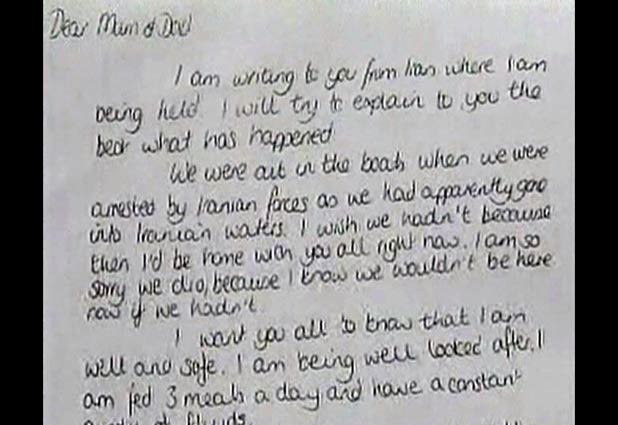 Dear Mum & Dad
I am writing to you from Iran where I am
being held. I will try to explain to you the
best what has happened.
We were out in the boats when we were
arrested by Iranian forces as we had apparently gone
into Iranian waters. I wish we hadn't because
then I'd be home with you all right now. I am so
sorry we did, because I know we wouldn't be here
now if we hadn't.
I want you all to know that I am
well and safe. I am being well looked after. I
am fed 3 meals a day and have a constant
of fluids.